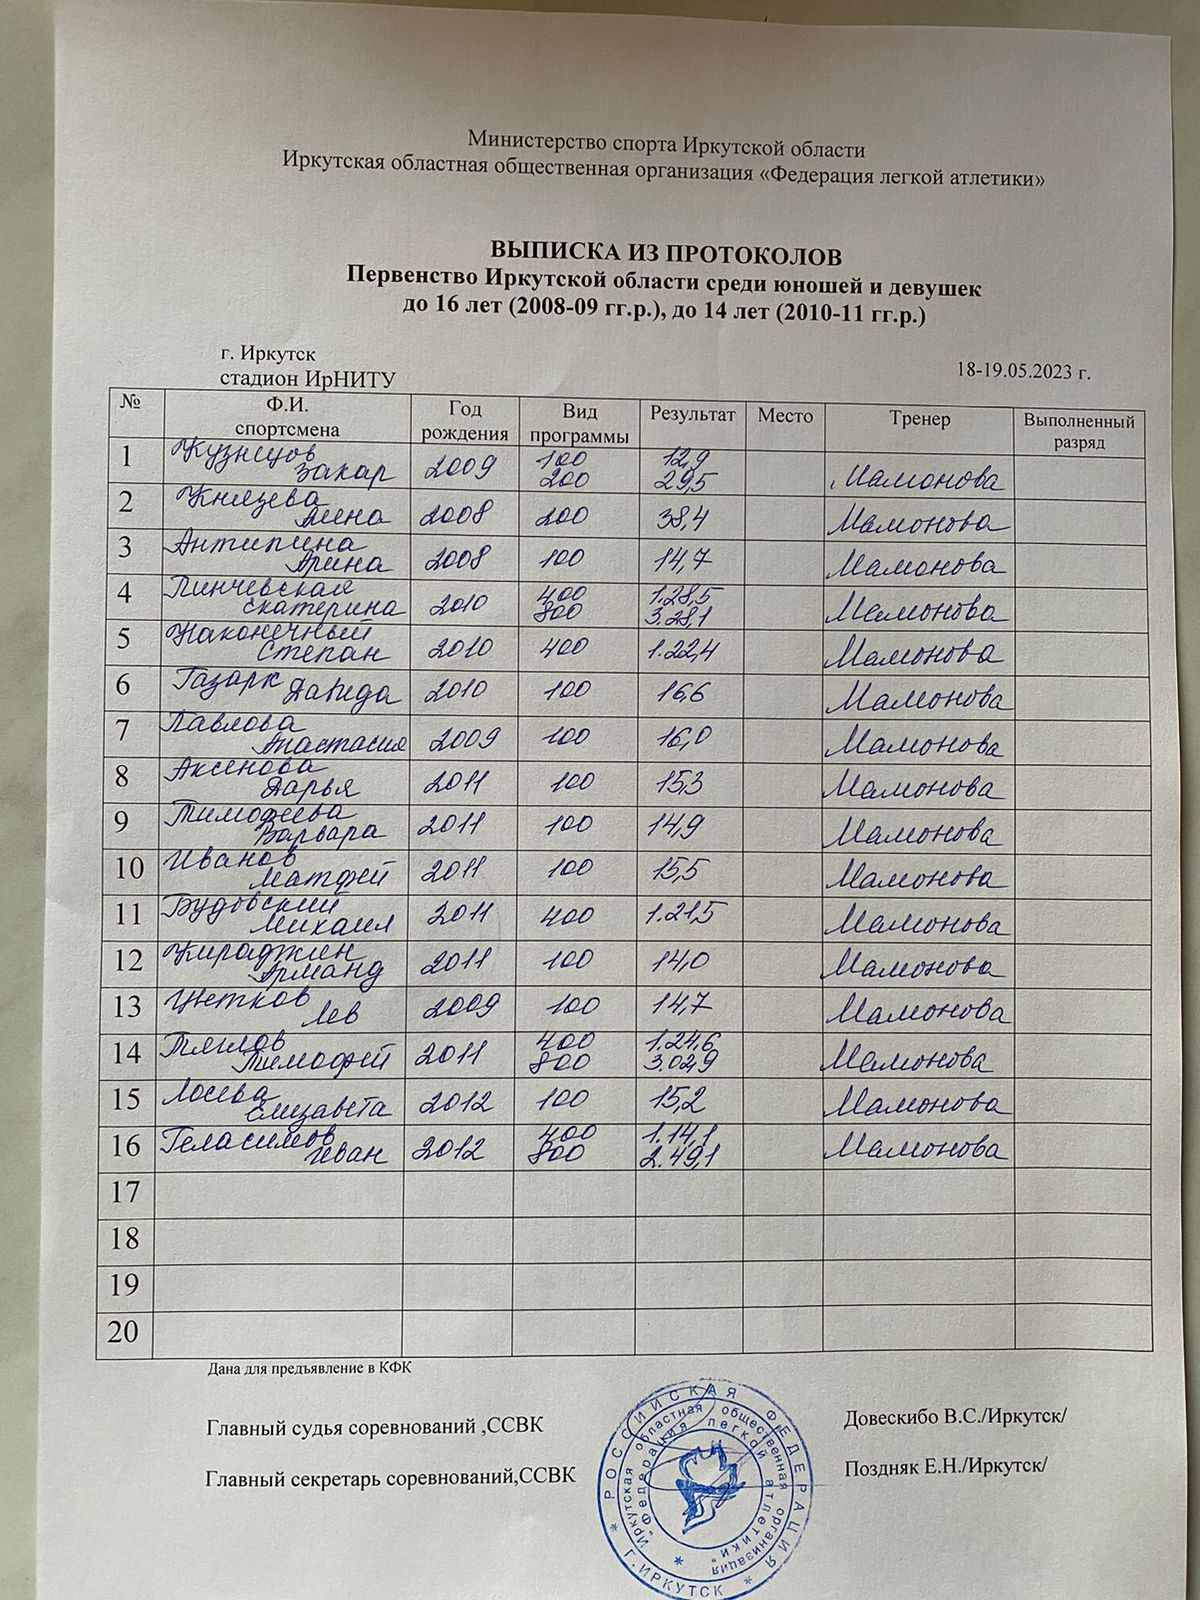 Министерство спорта Иркутской области
Иркутская областная общественная организация «Федерация легкой атлетики»
ВЫПИСКА ИЗ ПРОТОКОЛОВ
Первенство Иркутской области среди юношей и девушек
до 16 лет (2008-09 гг.р.), до 14 лет (2010-11 гг.р.)
г. Иркутск
стадион ИрНИТУ
18-19.05.2023 г.
№ Ф.И. спортсмена Год рождения Вид программы Результат Место Тренер Выполненный разряд
1 Кузнецов Захар 2009 100 200 12,9 29,5 Мамонова
2 Князева 2008 200 38,4 Мамонова
3 Антипина Арина 2008 100 14,7 Мамонова
4 Пинчевская Екатерина 2010 400 800 1.28,5 3.28,1 Мамонова
5 Наконечный Степан 2010 400 1.22,4 Мамонова
6 Газарк 2010 100 16,6 Мамонова
7 Павлова Анастасия 2009 100 16,0 Мамонова
8 Аксенова Дарья 2011 100 15,3 Мамонова
9 Тимофеева Варвара 2011 100 14,9 Мамонова
10 Иванов Матфей 2011 100 15,5 Мамонова
11 Будовский Михаил 2011 400 1.21,5 Мамонова
12 Кираджин Арманд 2011 100 14,0 Мамонова
13 Цветков Лев 2009 100 14,7 Мамонова
14 Тяглов Тимофей 2011 400 800 1.24,6 3.02,9 Мамонова
15 Лосева Елизавета 2012 100 15,2 Мамонова
16 Геласимов Иван 2012 400 800 1.14,1 2.49,1 Мамонова
17
18
19
20
Дана для предъявление в КФК
Главный судья соревнований ,ССВК Довескибо В.С./Иркутск/
Главный секретарь соревнований,ССВК Поздняк Е.Н./Иркутск/
РОССИЙСКАЯ ФЕДЕРАЦИЯ * Г.ИРКУТСК *
Иркутская областная общественная организация
"Федерация легкой атлетики"